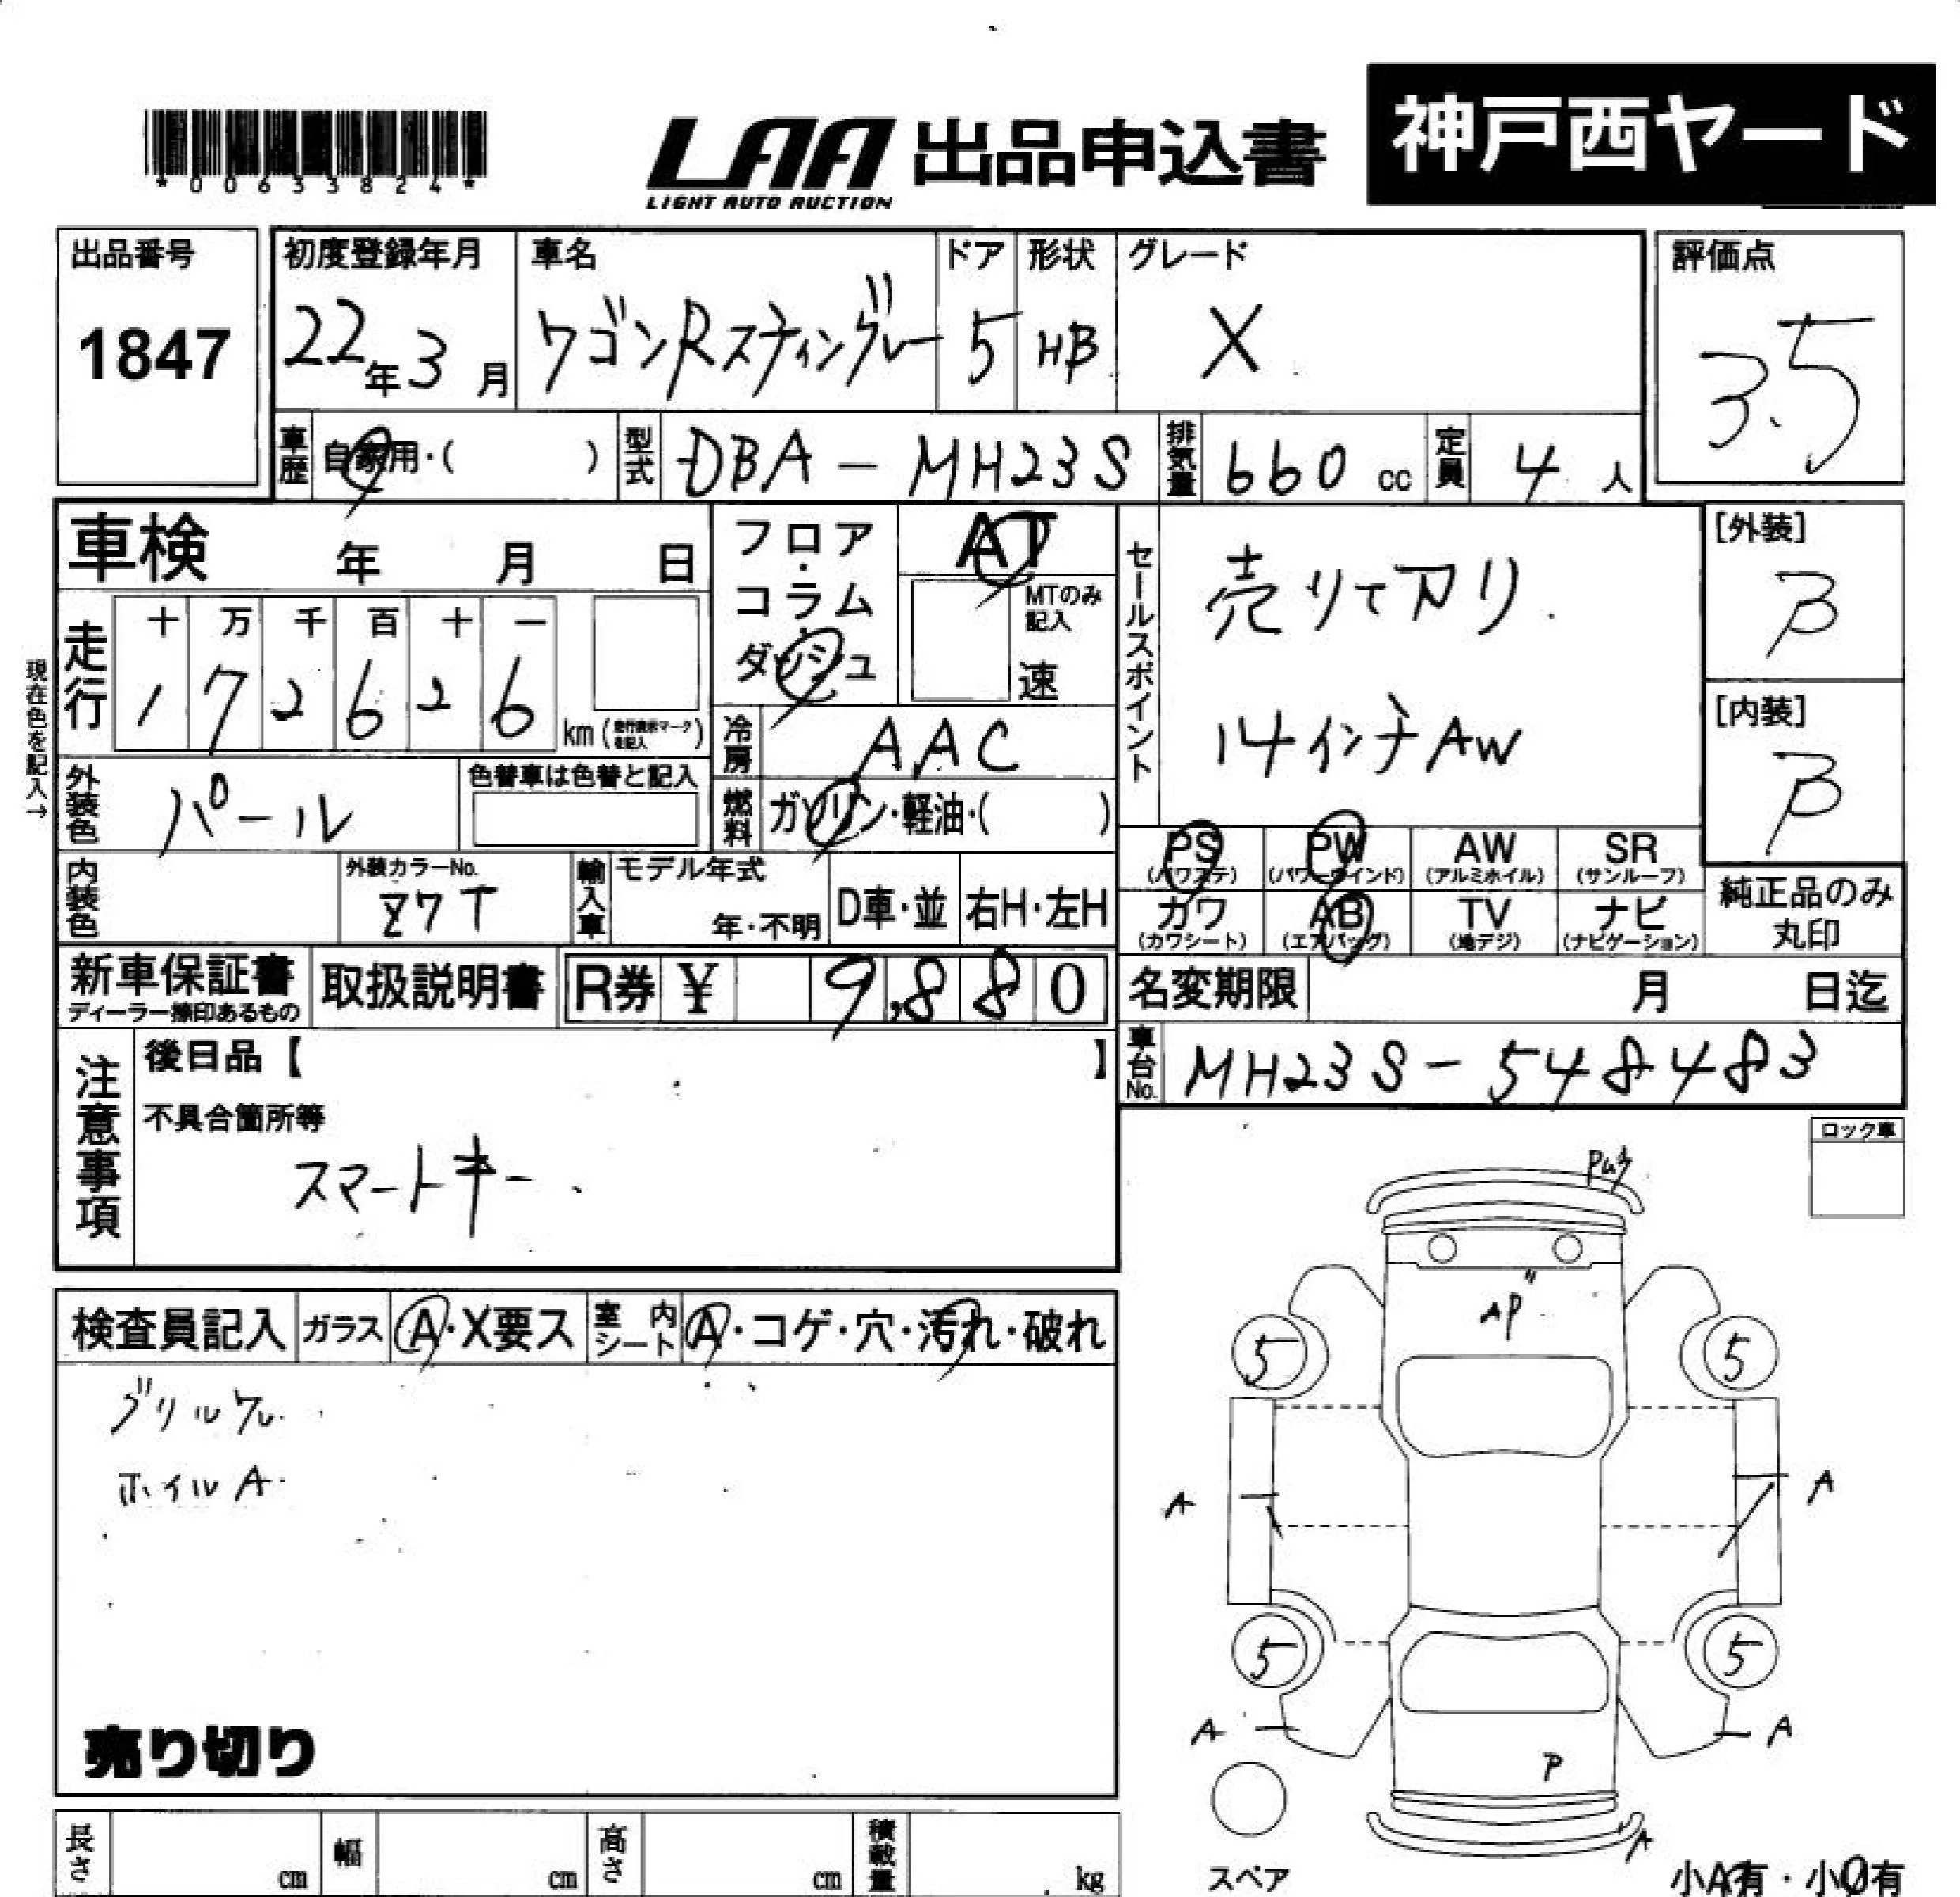 *00633824*
LAA 出品申込書
LIGHT AUTO AUCTION
神戸西ヤード
出品番号
1847
初度登録年月
22年3月
車名
ワゴンRスティングレー
ドア
5
形状
HB
グレード
X
評価点
3.5
車歴 自家用・( )
型式 DBA-MH23S
排気量 660 cc
定員 4人
車検 年 月 日
フロア・コラム・ダッシュ
AT
MTのみ記入
速
走行
十 万 千 百 十 一
1 7 2 6 2 6
km(走行表示マークを記入)
現在色を記入→
冷房 AAC
燃料 ガソリン・軽油・( )
外装色 パール
色替車は色替と記入
内装色
外装カラーNo.
Z7T
輸入車
モデル年式
年・不明
D車・並
右H・左H
セールスポイント
売り切り
14インチAW
[外装]
B
[内装]
B
PS (パワステ)
PW (パワーウインド)
AW (アルミホイル)
SR (サンルーフ)
カワ (カワシート)
AB (エアバッグ)
TV (地デジ)
ナビ (ナビゲーション)
純正品のみ
丸印
新車保証書
ディーラー捺印あるもの
取扱説明書
R券 ¥ 9,880
名変期限 月 日迄
車台No. MH23S-548483
注意事項
後日品【 】
不具合箇所等
スマートキー
ロック車
検査員記入
ガラス A・X要ス
室内シート A・コゲ・穴・汚れ・破れ
グリルワレ
ホイルA
売り切り
AP
5
5
A
A
5
5
A
A
P
A
スペア
小A有・小U有
長さ cm
幅 cm
高さ cm
積載量 kg